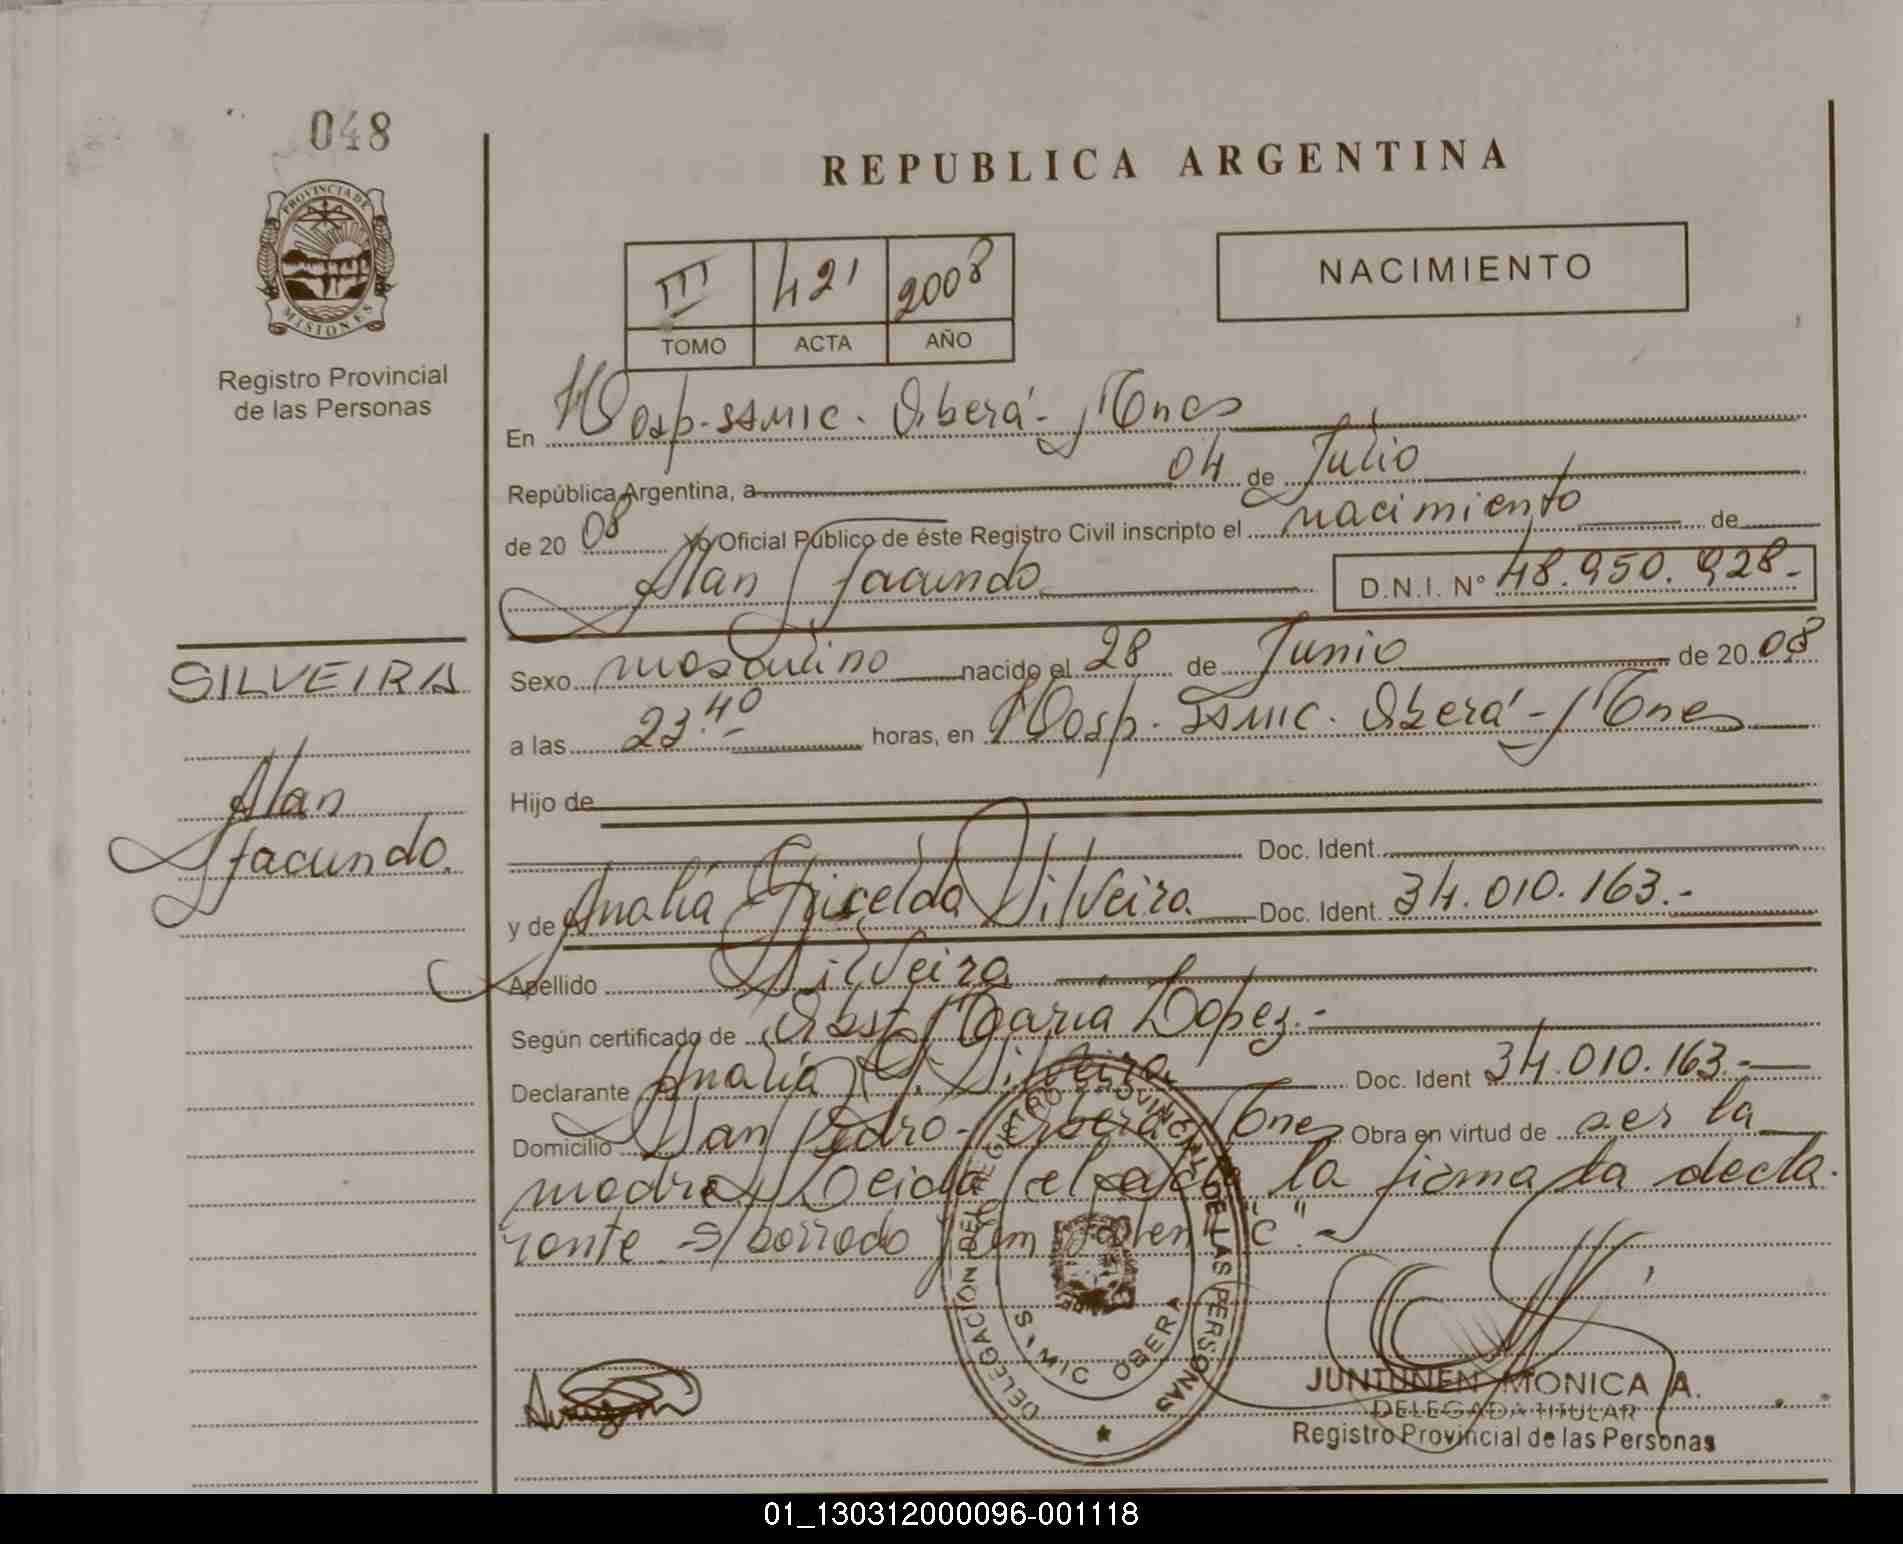 048
REPUBLICA ARGENTINA
PROVINCIA DE MISIONES
Registro Provincial
de las Personas
III 421 2008
TOMO ACTA AÑO
NACIMIENTO
En Hosp. SAMIC. Oberá - Mnes
República Argentina, a 04 de Julio
de 20 08 Yo Oficial Público de éste Registro Civil inscripto el nacimiento de
Alan Facundo D.N.I. N° 48.950.928.-
SILVEIRA
Alan
Facundo.
Sexo masculino nacido el 28 de Junio de 20 08
a las 23.40 horas, en Hosp. SAMIC. Oberá - Mnes
Hijo de
Doc. Ident.
y de Analía Gricelda Silveira Doc. Ident. 34.010.163.-
Apellido Silveira
Según certificado de Obst. María Lopez.-
Declarante Analía G. Silveira Doc. Ident 34.010.163.-
Domicilio San Pedro - Oberá Mnes Obra en virtud de ser la
madre Leida el acta la firma la decla.
rante - S/borrado "C".-
DELEGACION DEL REGISTRO PROVINCIAL DE LAS PERSONAS
OBERA
JUNTUNEN MONICA A.
DELEGADA TITULAR
Registro Provincial de las Personas
01_130312000096-001118